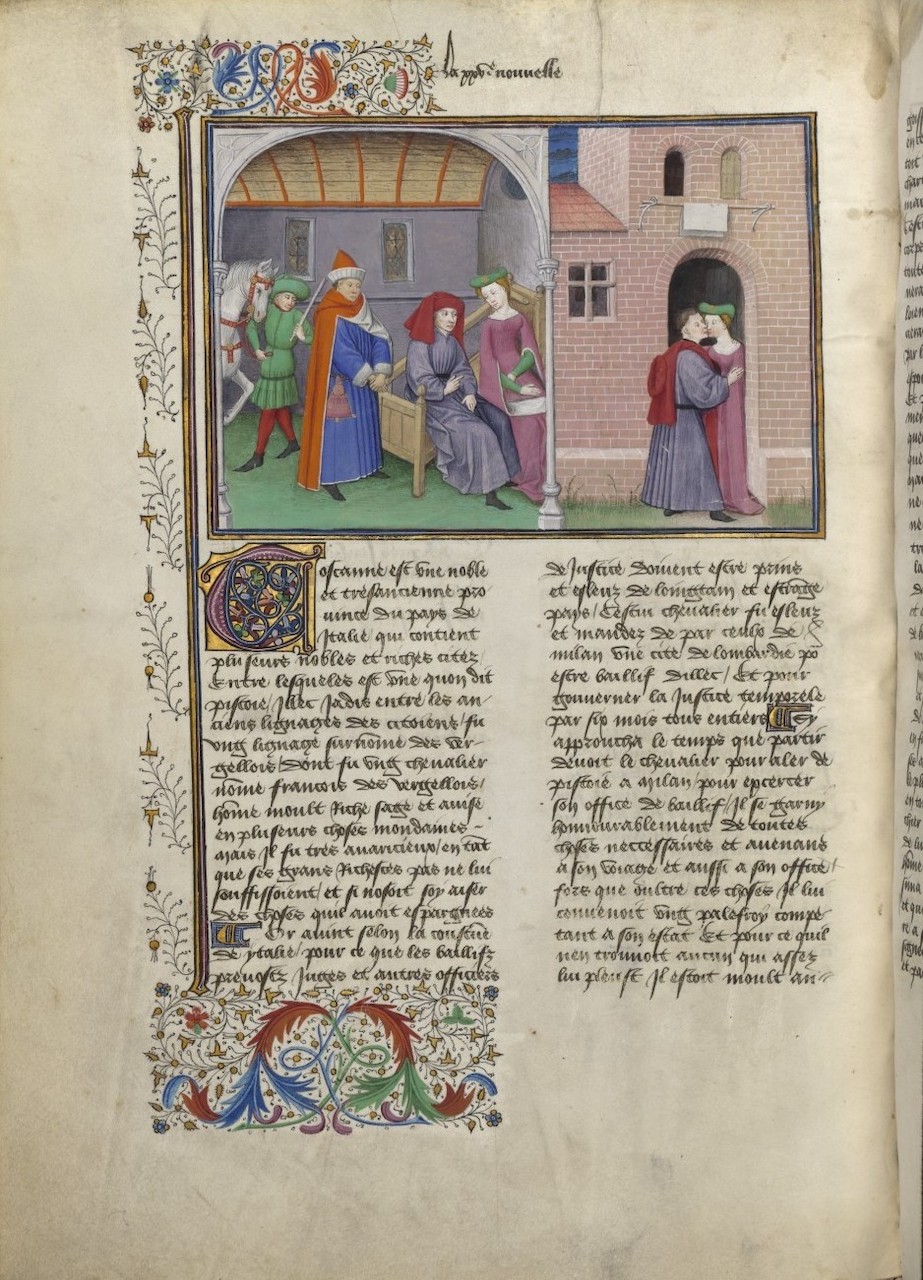 La xxv.e nouuelle
Toscanne est vne noble
et tresancienne pro
uince du pays de
Italie qui contient
pluseurs nobles et riches citez
Entre lesqueles est vne quon dit
pistoie / Illec jadis entre les an-
ciens lignages des citoiens / fu
vng lignage surnōme des ver-
gellois / dont fu vng cheualier
nōme francois des vergellois /
hōme moult Riche sage et auise
en pluseurs choses mondaines -
mais Il fu tres auaricieux / en tāt
que ses grans Richesces pas ne lui
souffisoient / et si nosoit soy aiser
des choses quil auoit espargnees
Or auint selon la coustūe
de ytalie / pour ce que les baillifz
preuostz Juges et autres officiers
de Justice doiuent estre prins
et esleuz de loingtain et estrāge
pays / Cestui cheualier fu esleuz
et mandez de par ceulx de
milan vne cite de lombardie po
estre baillif dillec / Et pour
gouuerner la Justice temporele
par six mois tous entiers Cy
approucha le temps que partir
deuoit le cheualier pour aler de
pistoie a milan / pour exercer
son office de baillif / Il se garny
honnourablement de toutes
choses neccessaires et auenans
a son voiage et aussi a son office /
fors que oultre ces choses Il lui
conuenoit vng palefroy compe
tant a son estat Et pour ce quil
nen trouuoit aucun qui assez
lui pleust Il estoit moult an-